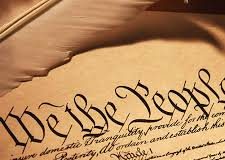 We the People
insure domestic Tranquility, provide for the com
Posterity, do ordain and establish this
Article